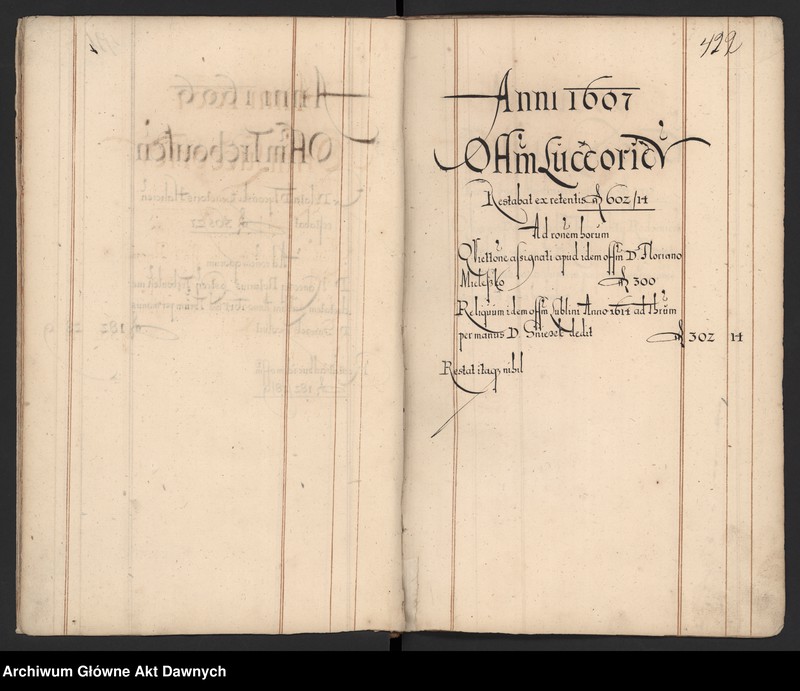 422
Anni 1607
Offm Luccorien
Restabat ex retentis fl 602/14
Ad ronem horum
Quiettone assignati apud idem offm D. Floriano
Mieleszko fl 300
Reliquum idem offm Lublini Anno 1614 ad thrum
per manus D. dedit fl 302 14
Restat itaq nihil
Archiwum Główne Akt Dawnych